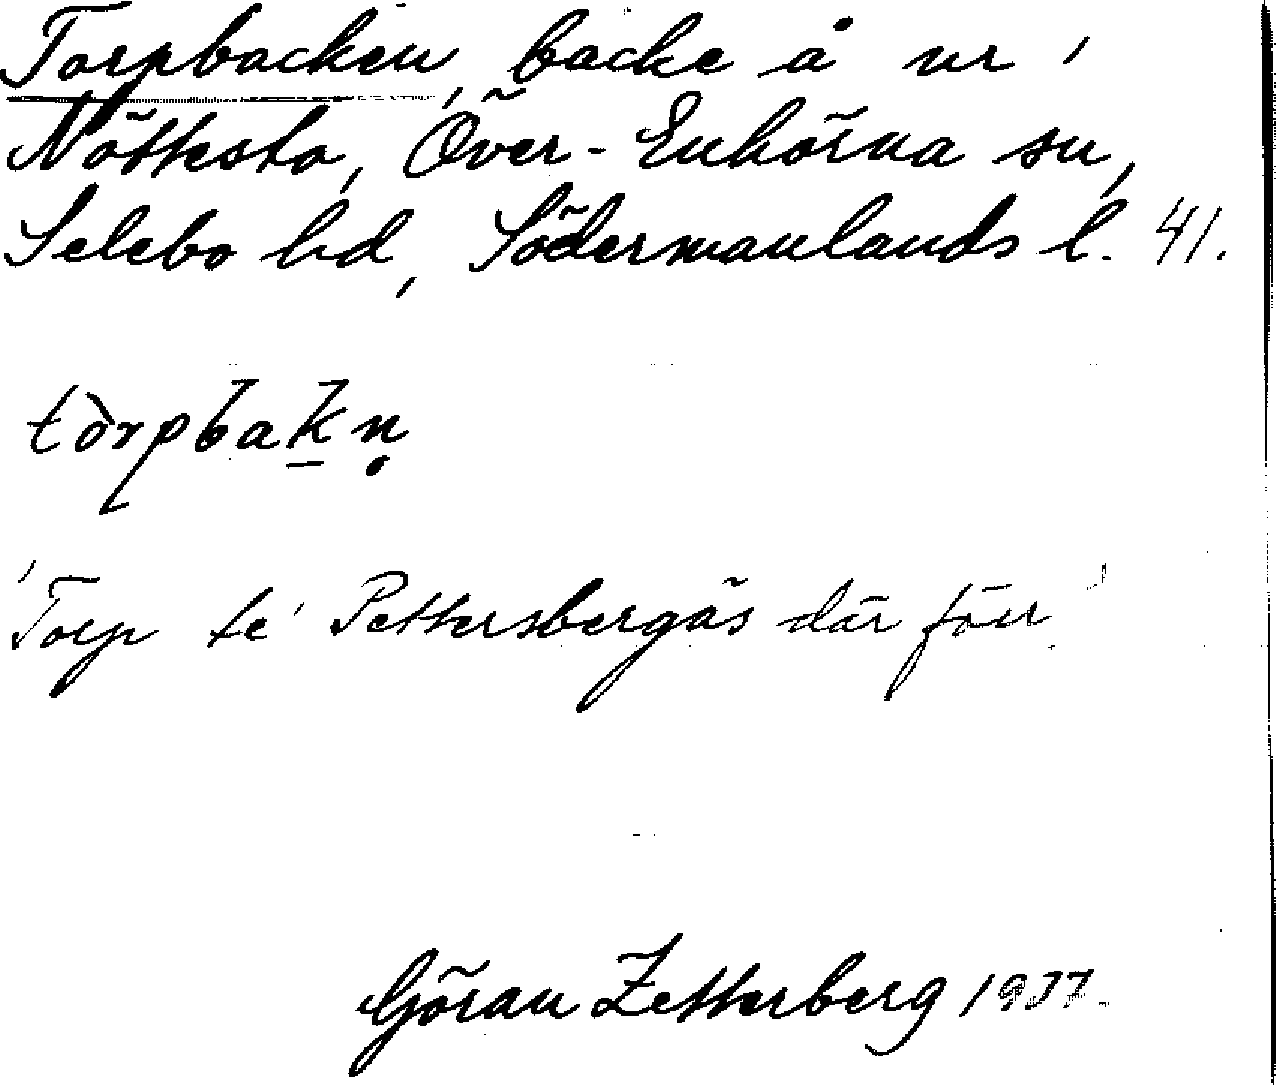 Torpbacken, backe å nr 1
Nöttesta, Över-Enhörna sn,
Selebo hd, Södermanlands l. 41.
tòrpbak̲ṇ
'Torp te' Pettersbergäs där förr'
Göran Zetterberg 1937.